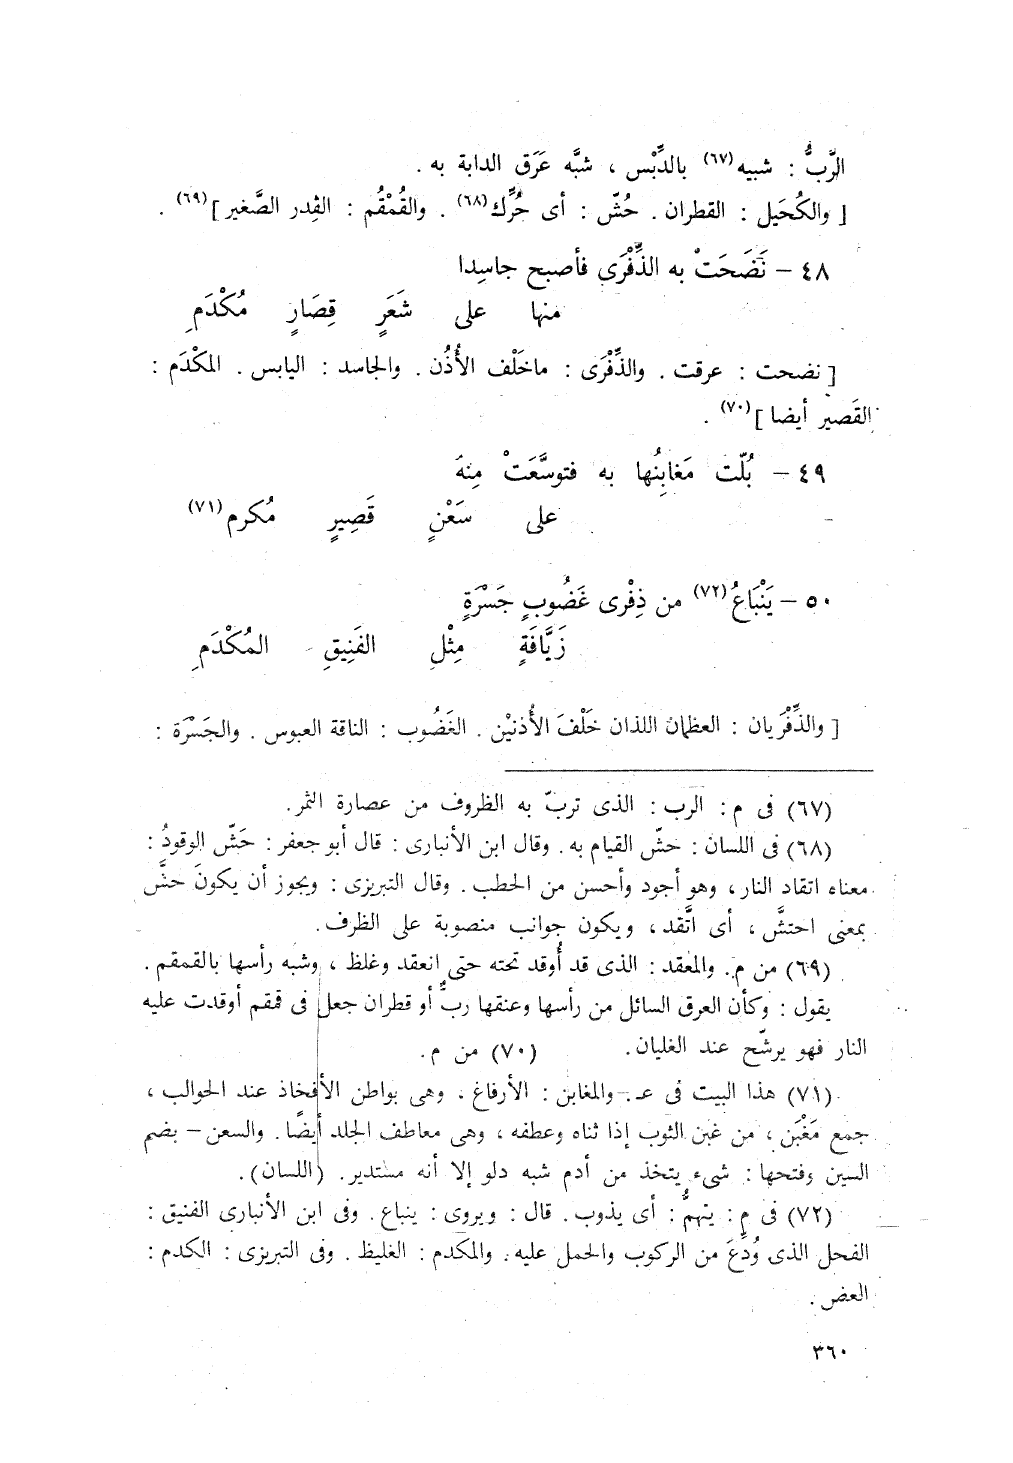 الرَّبُّ : شبيه(٦٧) بالدِّبْس ، شبَّه عَرَق الدابة به .
[ والكُحَيل : القطران . حُشّ : أى حُرِّك(٦٨) . والقُمْقُم : القِدر الصَّغير ](٦٩) .
٤٨ – نَضَحَتْ به الذِّفْرَى فأصبح جاسِدا
منها على شَعَرٍ قِصَارٍ مُكْدَمِ
[ نضحت : عرقت . والذِّفْرَى : ماخَلْف الأُذُن . والجاسد : اليابس . المكْدَم :
القَصير أيضا ](٧٠) .
٤٩ – بُلّت مَغابِنُها به فتوسَّعَتْ مِنهَ
على سَعْنٍ قَصِيرٍ مُكرم(٧١)
٥٠ – يَنْبَاعُ(٧٢) من ذِفْرى غَضُوبٍ جَسْرَةٍ
زَيَّافَةٍ مِثْلِ الفَنِيقِ المُكْدَمِ
[ والذِّفْرَيان : العظمان اللذان خَلْفَ الأُذنيْن . الغَضُوب : الناقة العبوس . والجَسْرَة :
(٦٧) فى م : الرب : الذى تربّ به الظروف من عصارة الثمر .
(٦٨) فى اللسان : حشّ القيام به . وقال ابن الأنبارى : قال أبو جعفر : حَشّ الوقودُ :
معناه اتقاد النار ، وهو أجود وأحسن من الحطب . وقال التبريزى : ويجوز أن يكونَ حشَّ
بمعنى احتشَّ ، أى اتَّقد ، ويكون جوانب منصوبة على الظرف .
(٦٩) من م . والمعقد : الذى قد أُوقد تحته حتى انعقد وغلظ ، وشبه رأسها بالقمقم .
يقول : وكأن العرق السائل من رأسها وعنقها ربٌّ أو قطران جعل فى قمقم أوقدت عليه
النار فهو يرشّح عند الغليان . (٧٠) من م .
(٧١) هذا البيت فى عـ . والمغابن : الأرفاغ ، وهى بواطن الأفخاذ عند الحوالب ،
جمع مَغْبَن ، من غبن الثوب إذا ثناه وعطفه ، وهى معاطف الجلد أيضًا . والسعن – بضم
السين وفتحها : شىء يتخذ من أدم شبه دلو إلا أنه مستدير . (اللسان) .
(٧٢) فى م : ينهمُّ : أى يذوب . قال : ويروى : ينباع . وفى ابن الأنبارى الفنيق :
الفحل الذى وُدِّعَ من الركوب والحمل عليه . والمكدم : الغليظ . وفى التبريزى : الكدم :
العض .
٣٦٠